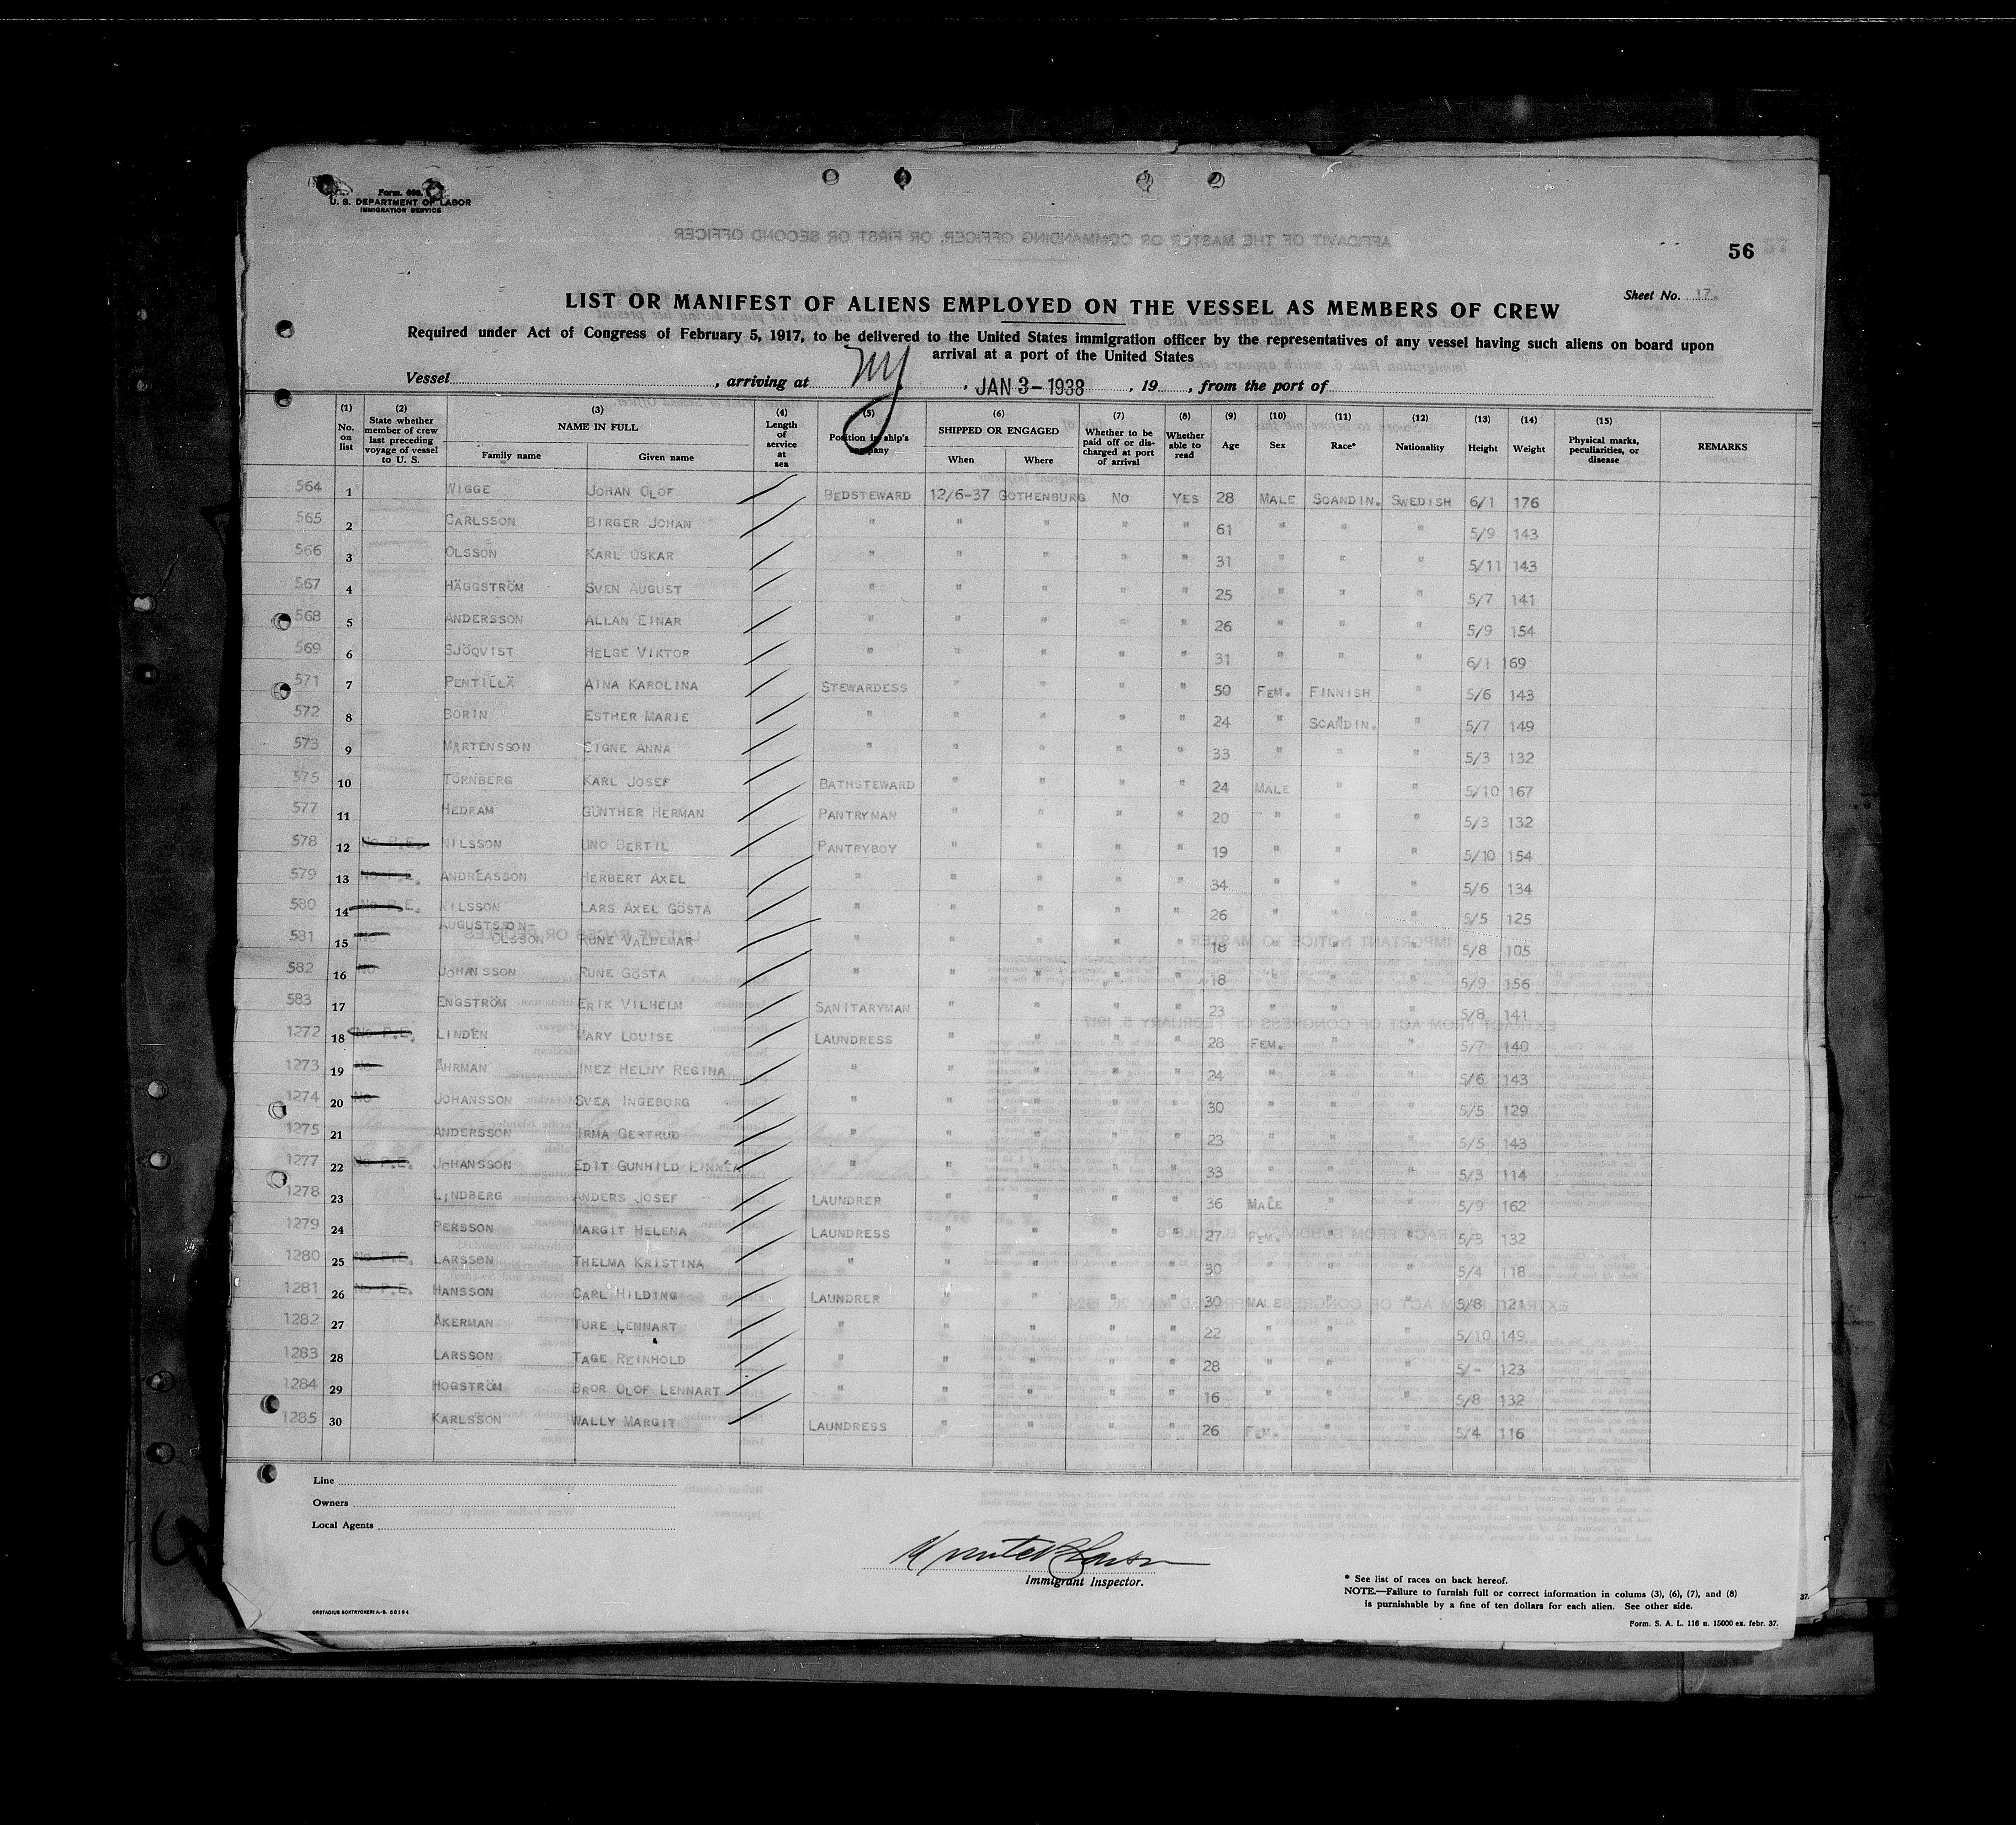 Form. 686.
U. S. DEPARTMENT OF LABOR
IMMIGRATION SERVICE
AFFIDAVIT OF THE MASTER OR COMMANDING OFFICER, OR FIRST OR SECOND OFFICER
56
Sheet No. 17.
LIST OR MANIFEST OF ALIENS EMPLOYED ON THE VESSEL AS MEMBERS OF CREW
Required under Act of Congress of February 5, 1917, to be delivered to the United States immigration officer by the representatives of any vessel having such aliens on board upon
arrival at a port of the United States
Vessel , arriving at NY , JAN 3-1938 , 19 , from the port of
(1) No. on list (2) State whether member of crew last preceding voyage of vessel to U. S. (3) NAME IN FULL Family name Given name (4) Length of service at sea (5) Position in ship's company (6) SHIPPED OR ENGAGED When Where (7) Whether to be paid off or discharged at port of arrival (8) Whether able to read (9) Age (10) Sex (11) Race* (12) Nationality (13) Height (14) Weight (15) Physical marks, peculiarities, or disease REMARKS
564 1 WIGGE JOHAN OLOF BEDSTEWARD 12/6-37 GOTHENBURG NO YES 28 MALE SCANDIN. SWEDISH 6/1 176
565 2 CARLSSON BIRGER JOHAN " " " " " 61 " " " 5/9 143
566 3 OLSSON KARL OSKAR " " " " " 31 " " " 5/11 143
567 4 HÄGGSTRÖM SVEN AUGUST " " " " " 25 " " " 5/7 141
568 5 ANDERSSON ALLAN EINAR " " " " " 26 " " " 5/9 154
569 6 SJÖQVIST HELGE VIKTOR " " " " " 31 " " " 6/1 169
571 7 PENTILLÄ AINA KAROLINA STEWARDESS " " " " 50 FEM. FINNISH " 5/6 143
572 8 BORIN ESTHER MARIE " " " " " 24 " SCANDIN. " 5/7 149
573 9 MÅRTENSSON SIGNE ANNA " " " " " 33 " " " 5/3 132
575 10 TÖRNBERG KARL JOSEF BATHSTEWARD " " " " 24 MALE " " 5/10 167
577 11 HEDRAM GÜNTHER HERMAN PANTRYMAN " " " " 20 " " " 5/3 132
578 12 No P.E. NILSSON UNO BERTIL PANTRYBOY " " " " 19 " " " 5/10 154
579 13 No P.E. ANDREASSON HERBERT AXEL " " " " " 34 " " " 5/6 134
580 14 No P.E. NILSSON LARS AXEL GÖSTA " " " " " 26 " " " 5/5 125
581 15 No AUGUSTSSON-OLSSON RUNE VALDEMAR " " " " " 18 " " " 5/8 105
582 16 No JOHANSSON RUNE GÖSTA " " " " " 18 " " " 5/9 156
583 17 ENGSTRÖM ERIK VILHELM SANITARYMAN " " " " 23 " " " 5/8 141
1272 18 No P.E. LINDÉN MARY LOUISE LAUNDRESS " " " " 28 FEM. " " 5/7 140
1273 19 No ÅHRMAN INEZ HELNY REGINA " " " " " 24 " " " 5/6 143
1274 20 No JOHANSSON SVEA INGEBORG " " " " " 30 " " " 5/5 129
1275 21 ANDERSSON IRMA GERTRUD " " " " " 23 " " " 5/5 143
1277 22 No P.E. JOHANSSON EDIT GUNHILD LINNÉA " " " " " 33 " " " 5/3 114
1278 23 LINDBERG ANDERS JOSEF LAUNDRER " " " " 36 MALE " " 5/9 162
1279 24 PERSSON MARGIT HELENA LAUNDRESS " " " " 27 FEM. " " 5/3 132
1280 25 No P.E. LARSSON THELMA KRISTINA " " " " " 30 " " " 5/4 118
1281 26 No P.E. HANSSON CARL HILDING LAUNDRER " " " " 30 MALE " " 5/8 121
1282 27 ÅKERMAN TURE LENNART " " " " " 22 " " " 5/10 149
1283 28 LARSSON TAGE REINHOLD " " " " " 28 " " " 5/- 123
1284 29 HÖGSTRÖM BROR OLOF LENNART " " " " " 16 " " " 5/8 132
1285 30 KARLSSON WALLY MARGIT LAUNDRESS " " " " 26 FEM. " " 5/4 116
Line
Owners
Local Agents
Immigrant Inspector.
* See list of races on back hereof.
NOTE.—Failure to furnish full or correct information in colums (3), (6), (7), and (8)
is purnishable by a fine of ten dollars for each alien. See other side.
ORSTADIUS BOKTRYCKERI A.-B. 66194
Form. S. A. L. 116 n. 15000 ex. febr. 37.
37.